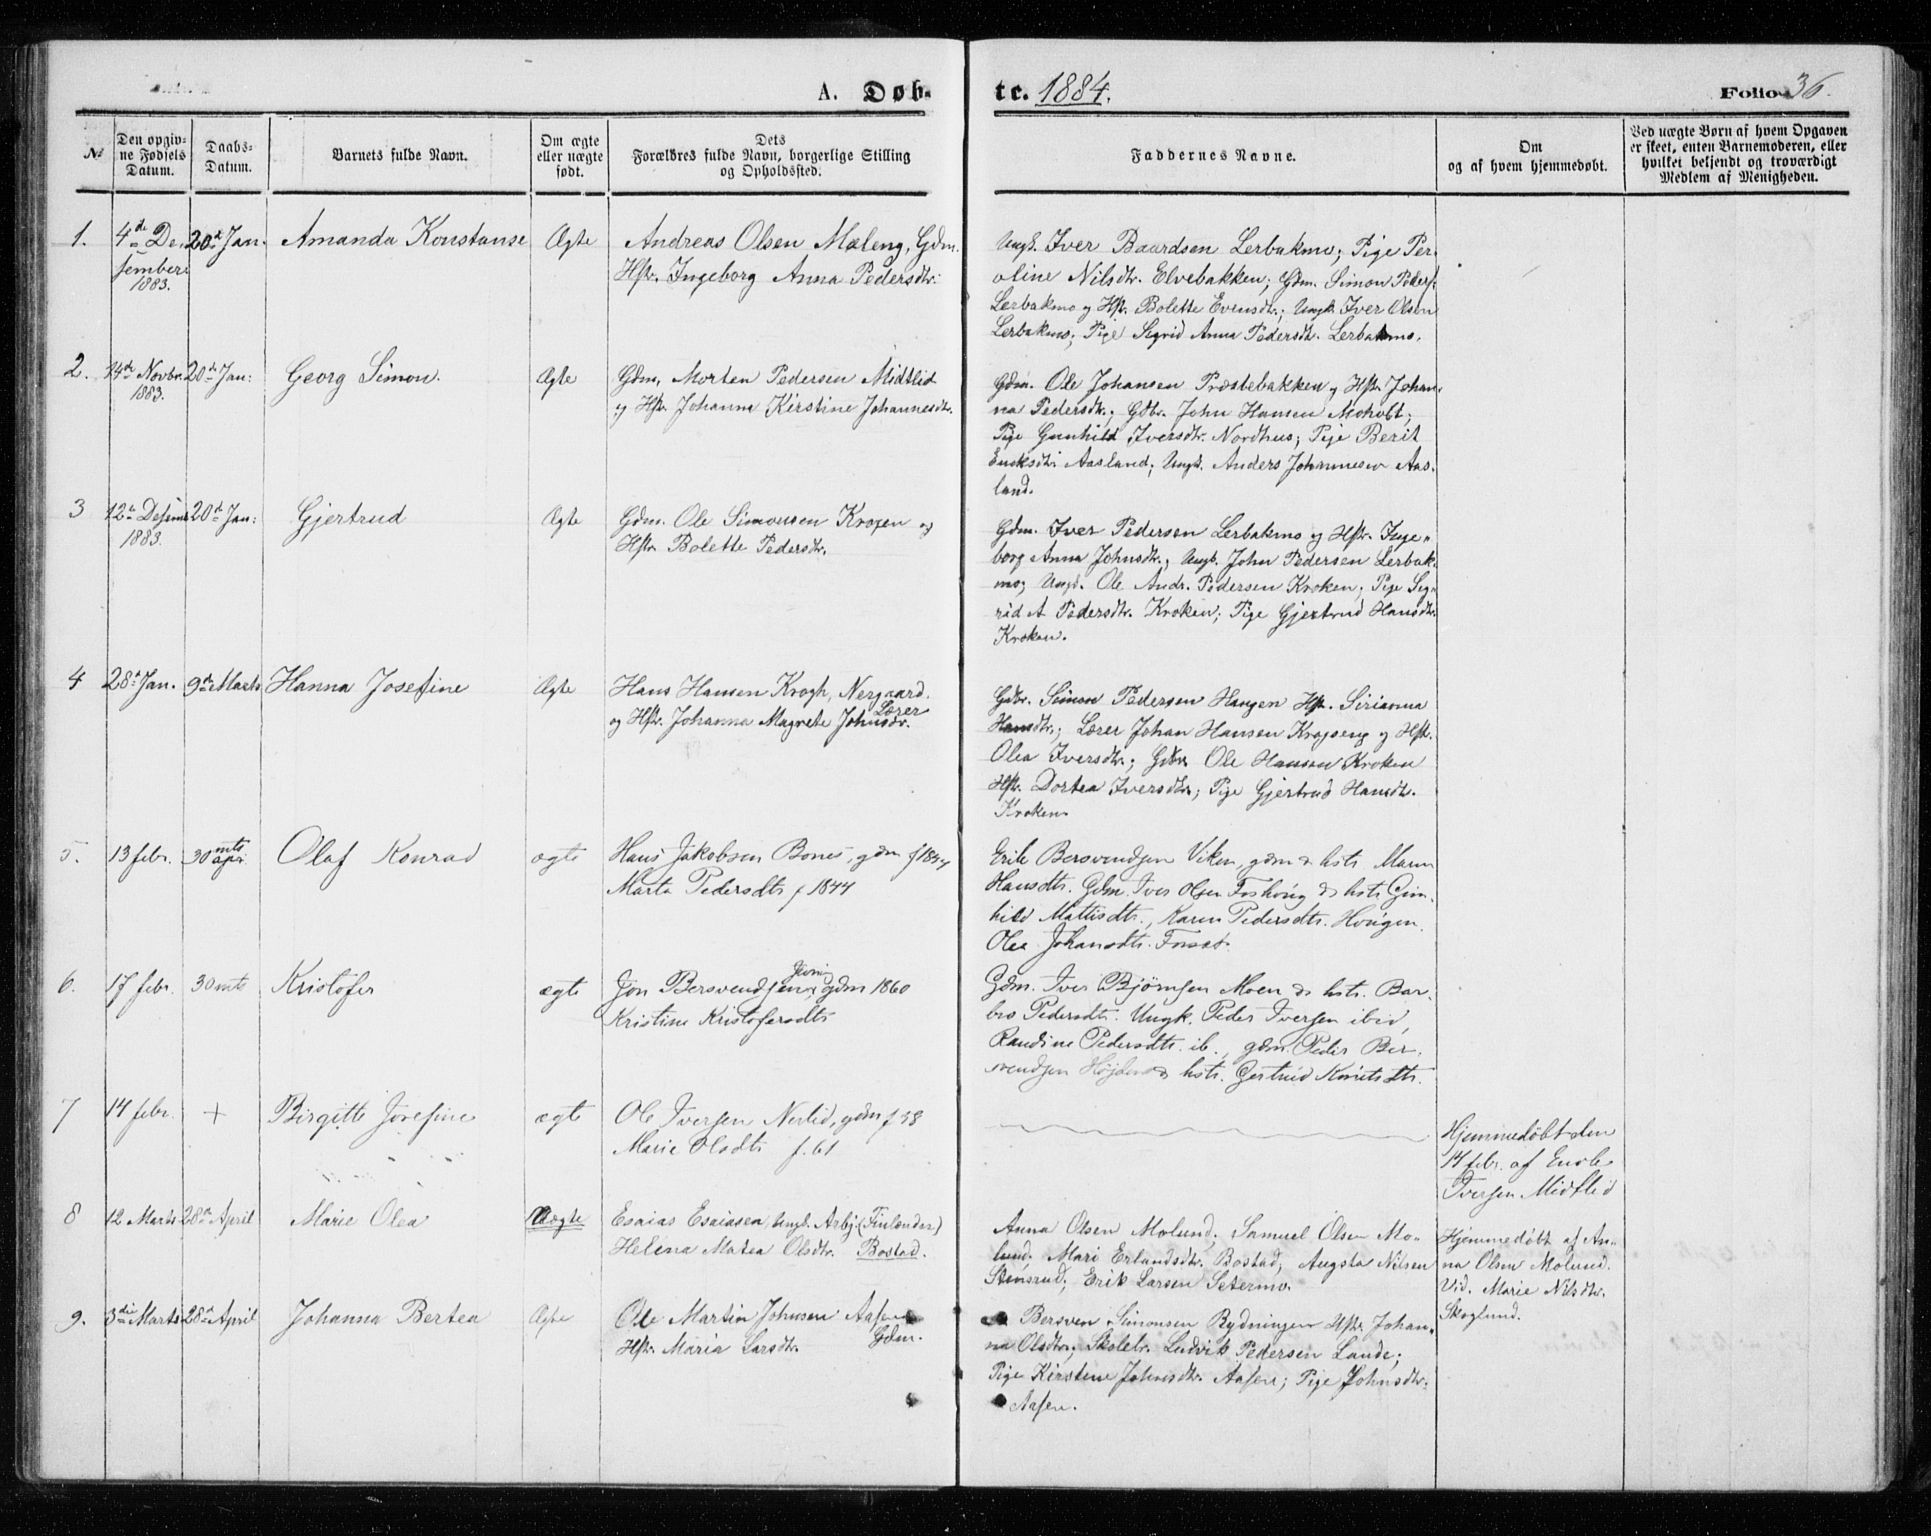 A. Døb- te. 1884. Folio 36.
№
Den opgivne Fødsels Datum.
Daabs-Datum.
Barnets fulde Navn.
Om ægte eller uægte født.
Dets Forældres fulde Navn, borgerlige Stilling og Opholdssted.
Faddernes Navne.
Om og af hvem hjemmedøbt.
Ved uægte Børn af hvem Opgaven er skeet, enten Barnemoderen, eller hvilket bekjendt og troværdigt Medlem af Menigheden.
1. 4de De- 20d Jan. Amanda Konstanse Ægte Andreas Olsen Mæleng, Gdm.
sember 1883. Hstr. Ingeborg Anna Pedersdtr.
Ungk. Iver Baardsen Lerbakmo; Pige Per-
oline Nilsdtr. Elvebakken; Gdm. Simon Peders.
Lerbakmo og Hstr. Bolette Evensdtr.; Ungk. Iver Olsen
Lerbakmo; Pige Sigrid Anna Pedersdtr. Lerbakmo.
2. 14de Novbr. 1883. 20de Jan: Georg Simon. Ægte Gdm. Morten Pedersen Midtlid
og Hstr. Johanna Kirstine Johannesdtr.
Gdm. Ole Johansen Præstebakken og Hstr. Johan-
na Pedersdtr.; Gdbr. John Hansen Moholt;
Pige Gunhild Iversdtr. Nordhus; Pige Berit
Eriksdtr. Aasland; Ungk. Anders Johannesen Aas-
land.
3 12te Desemb 1883. 20d Jan: Gjertrud Ægte Gdm. Ole Simonsen Krogen og
Hstr. Bolette Pedersdtr.
Gdm. Iver Pedersen Lerbakmo og Hstr. Inge-
borg Anna Johnsdtr.; Ungk. John Pedersen Lerbak-
mo; Ungk. Ole Andr. Pedersen Kroken; Pige Sig-
rid A Pedersdtr. Kroken; Pige Gjertrud Hansdtr.
Kroken.
4 28d Jan. 9de Marts Hanna Josefine Ægte Hans Hansen Krogh, Nergaard.
Lærer
og Hstr. Johanna Magrete Johnsdtr.
Gdbr. Simon Pedersen Haugen Hstr. Sirianna
Hansdtr.; Lærer Johan Hansen Krogseng og Hstr.
Olea Iversdtr.; Gdbr. Ole Hansen Kroken
Hstr. Dortea Iversdtr; Pige Gjertrud Hansdtr.
Kroken
5. 13 febr. 30 mts apr. Olaf Konrad ægte Hans Jakobsen Bones, gdm
Marta Pedersdtr f 1844
Erik Bersvendsen Viken, gdm & hstr. Maren
Hansdtr. Gdm. Iver Olsen & hstr. Gun-
hild Mattisdtr., Karen Pedersdtr. Hougen.
Olea Johansdtr.
6. 17 febr. 30 mts Kristofer ægte Jon Bersvendsen gdm 1860
Kristine Kristofersdtr
Gdm. Iver Bjørnsen Moen & hstr. Bar-
bro Pedersdtr. Ungk. Peder Iversen ibid,
Randine Pedersdtr. ib., gdm. Peder Ber-
svendsen & hstr. Gertrud
7 14 febr. + Birgitte Josefine ægte Ole Iversen Nerlid, gdm f 58
Marie Olsdtr f. 61
Hjemmedøbt den
14 febr. af Enok
Iversen Midtlid
8 12 Marts 28de April Marie Olea Uægte Esaias Esaiasen Ungk. Arbj. (Finlænder)
Helena Matea Olsdtr. Bostad.
Anna Olsen Molund; Samuel Olsen Mo-
lund; Mari Erlandsdtr. Bostad; Augsta Nilsen
Stensrud; Erik Larsen Setermo.
Hjemmedøbt af An-
na Olsen Molund.
Vid. Marie Nilsdtr.
Skoglund.
9. 3die Marts 28de April Johanna Bertea Ægte Ole Martin Johnsen Aasen
Gdm.
Hstr. Maria Larsdtr.
Bersven Simonsen Rydningen Hstr. Johan-
na Olsdtr; Skolelr. Ludvik Pedersen Lande;
Pige Kirstine Johnsdtr. Aasen; Pige Johnsdtr.
Aasen.